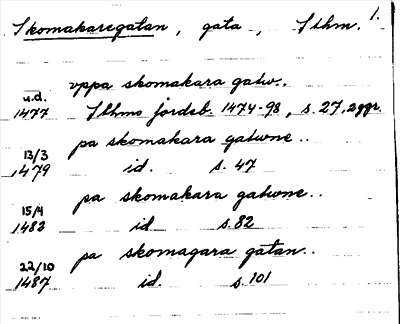 1.
Skomakaregatan, gata, Sthm.
vppa skomakara gatw..
u.d.
1477 Sthms jordeb. 1474-98, s. 27, aggr.
pa skomakara gatwne..
13/3
1479 id. s. 47
pa skomakara gatwne..
15/4
1483 id s. 82
pa skomagara gatan..
22/10
1487 id. s. 101